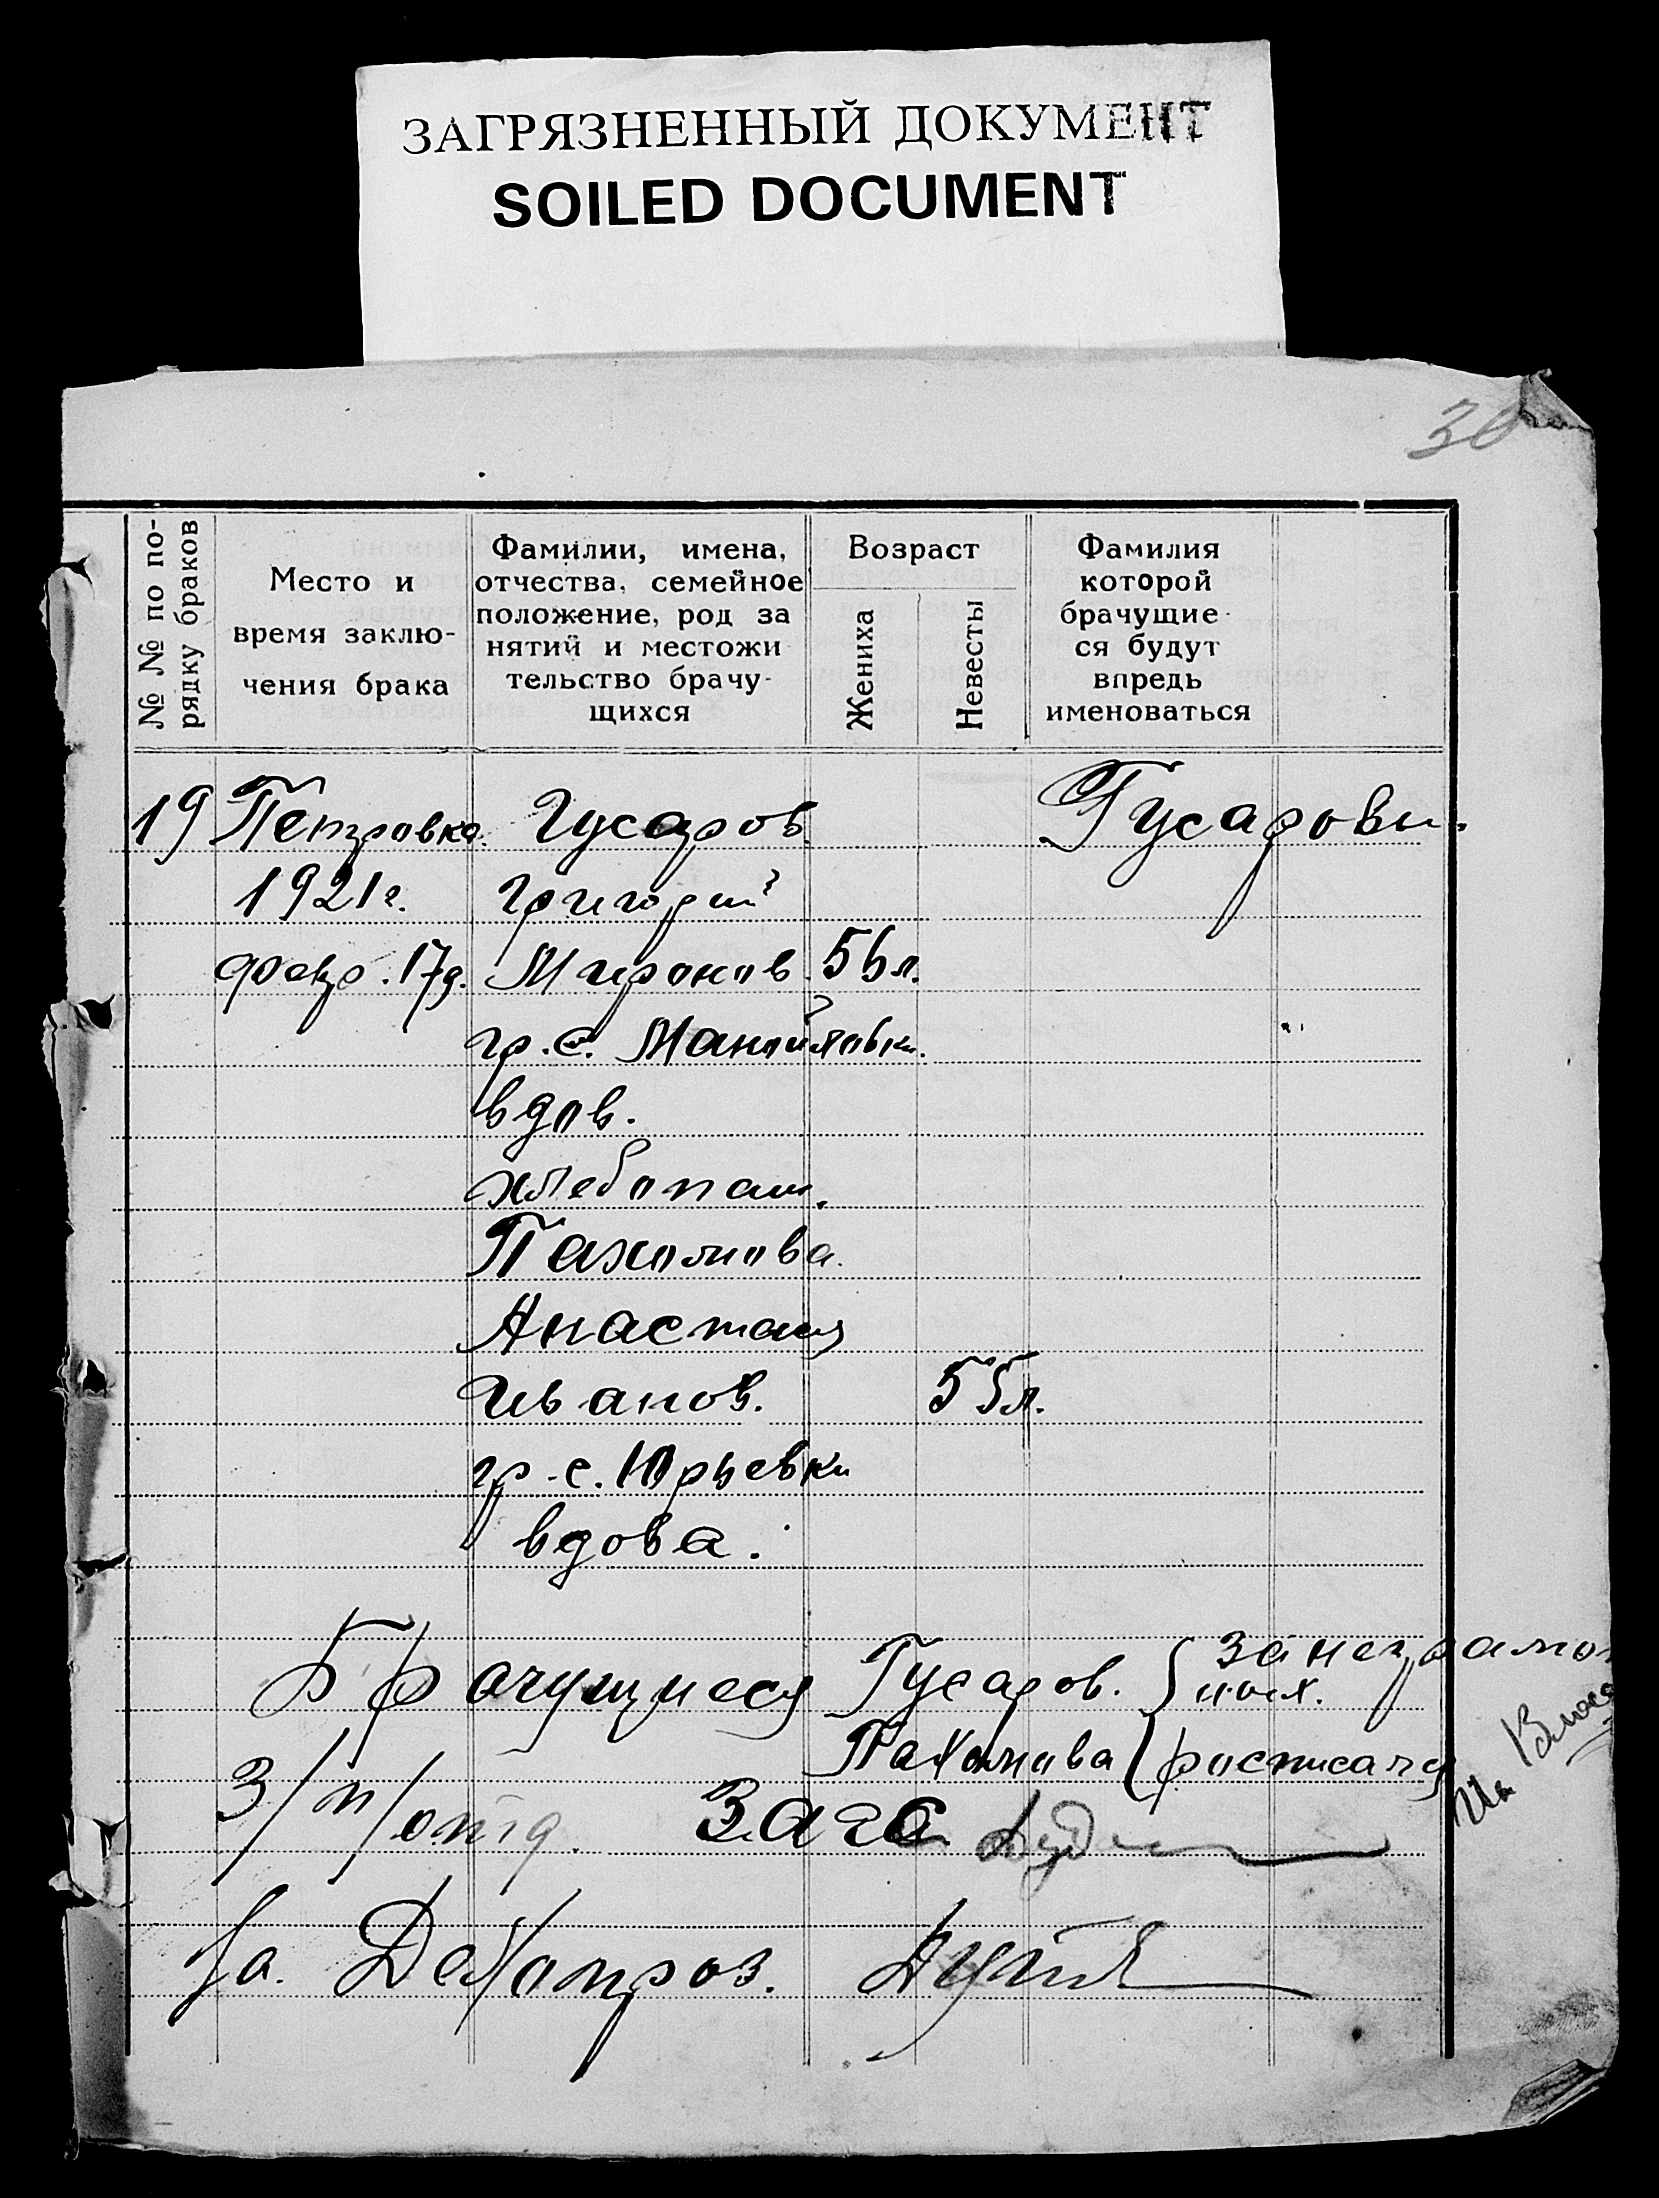 ЗАГРЯЗНЕННЫЙ ДОКУМЕНТ
SOILED DOCUMENT
30
№ № по по-
рядку браков
Место и
время заклю-
чения брака
Фамилии, имена,
отчества, семейное
положение, род за
нятий и местожи
тельство брачу-
щихся
Возраст
Жениха
Невесты
Фамилия
которой
брачущие-
ся будут
впредь
именоваться
19 Петровка. Гусаров. Гусаровы.
1921 г. Григорий
февр. 17 д. Миронов. 56 л.
гр. с. Манойловки.
вдов.
хлебопаш.
Пахомова.
Анастасия
Иванов. 55 л.
гр. с. Юрьевки
вдова.
Брачущиеся Гусаров. за неграмот
ных.
Пахомова росписался
Ив. Власо
З/п/отд. Загс.
За. Делопроз.